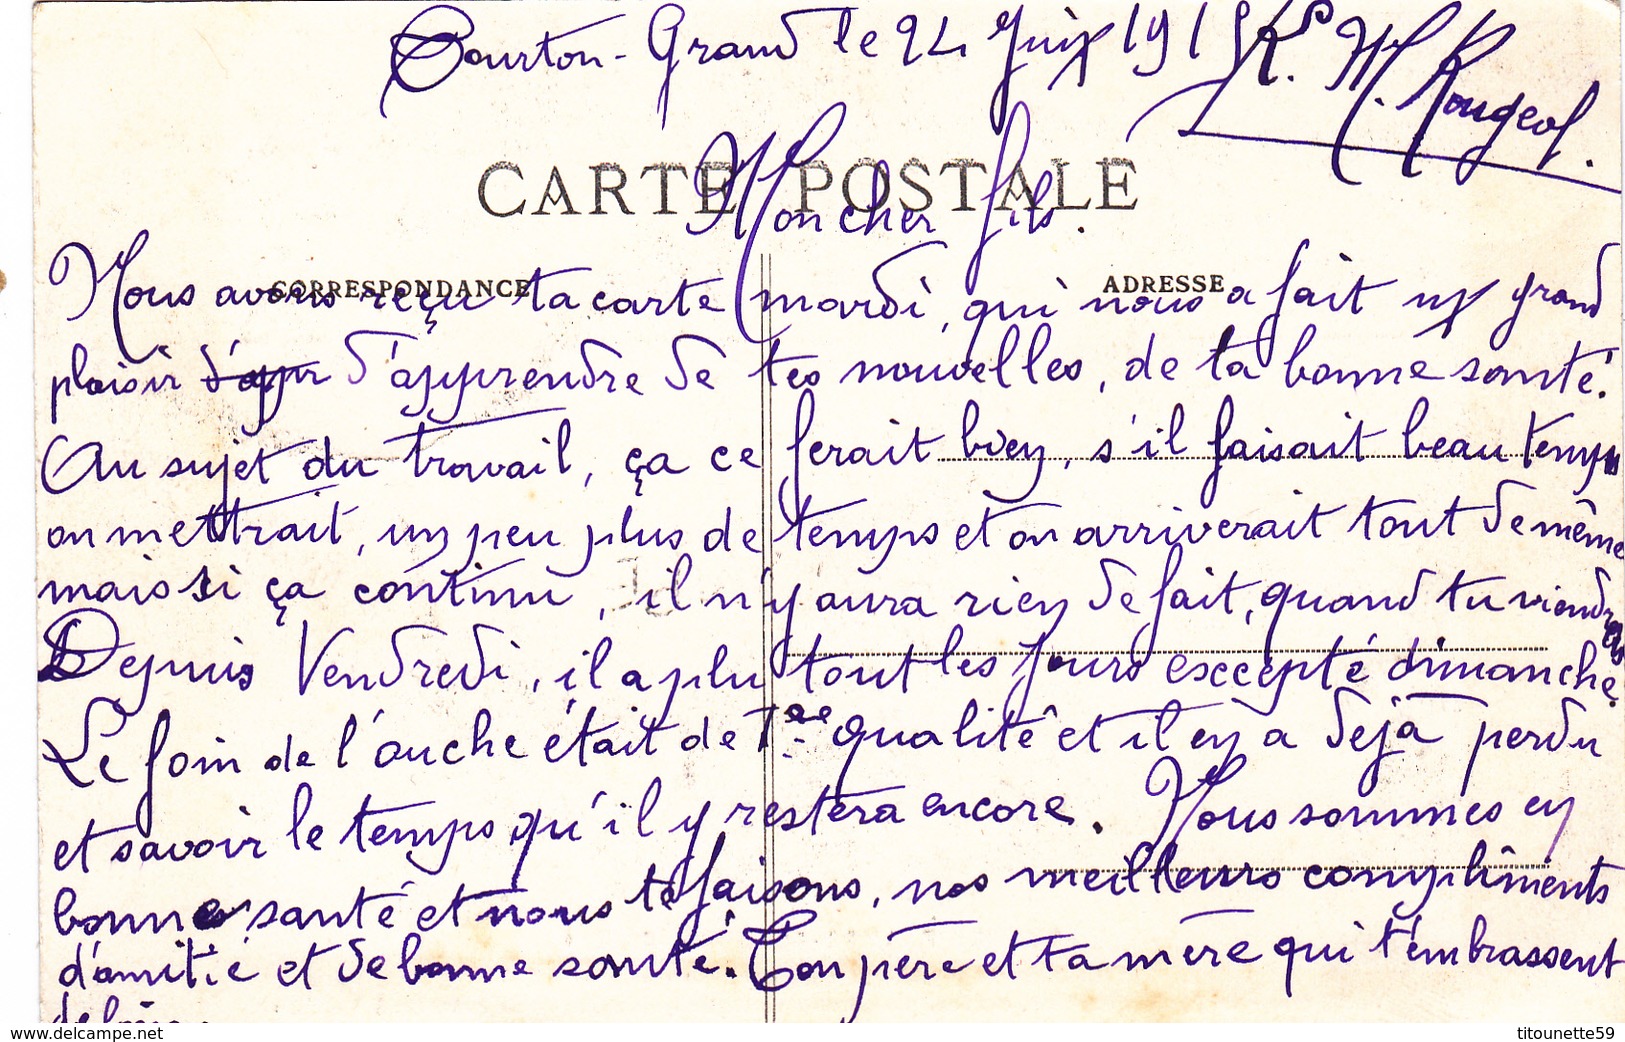 Courton-Grand le 24 Juin 191
R. M. Rougeol.
CARTE POSTALE
Mon cher fils.
CORRESPONDANCE
ADRESSE
Nous avons reçu ta carte mardi, qui nous a fait un grand
plaisir d'appr d'apprendre de tes nouvelles, de ta bonne santé.
Au sujet du travail, ça ce ferait bien, s'il faisait beau temps
on mettrait, un peu plus de temps et on arriverait tout de même
mais si ça continu, il n'y aura rien de fait, quand tu viendras
Depuis Vendredi, il a plu tout les jours excepté dimanche.
Le foin de l'ouche était de 1ère qualité et il en a déjà perdu
et savoir le temps qu'il y restera encore. Nous sommes en
bonne santé et nous te faisons, nos meilleurs compliments
d'amitié et de bonne santé. Ton père et ta mère qui t'embrassent
de loin.
delcampe.net
titounette59